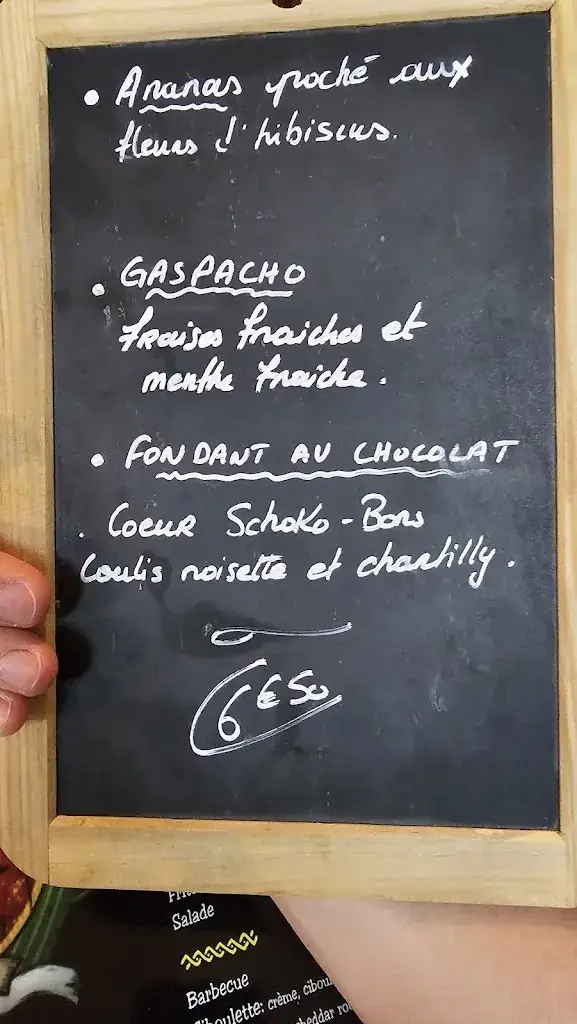 • Ananas poché aux
fleurs d'hibiscus.
• GASPACHO
fraises fraiches et
menthe fraiche.
• FONDANT AU CHOCOLAT
. Coeur Schoko-Bons
Coulis noisette et chantilly.
6€50
Salade
Barbecue
Ciboulette: crème,